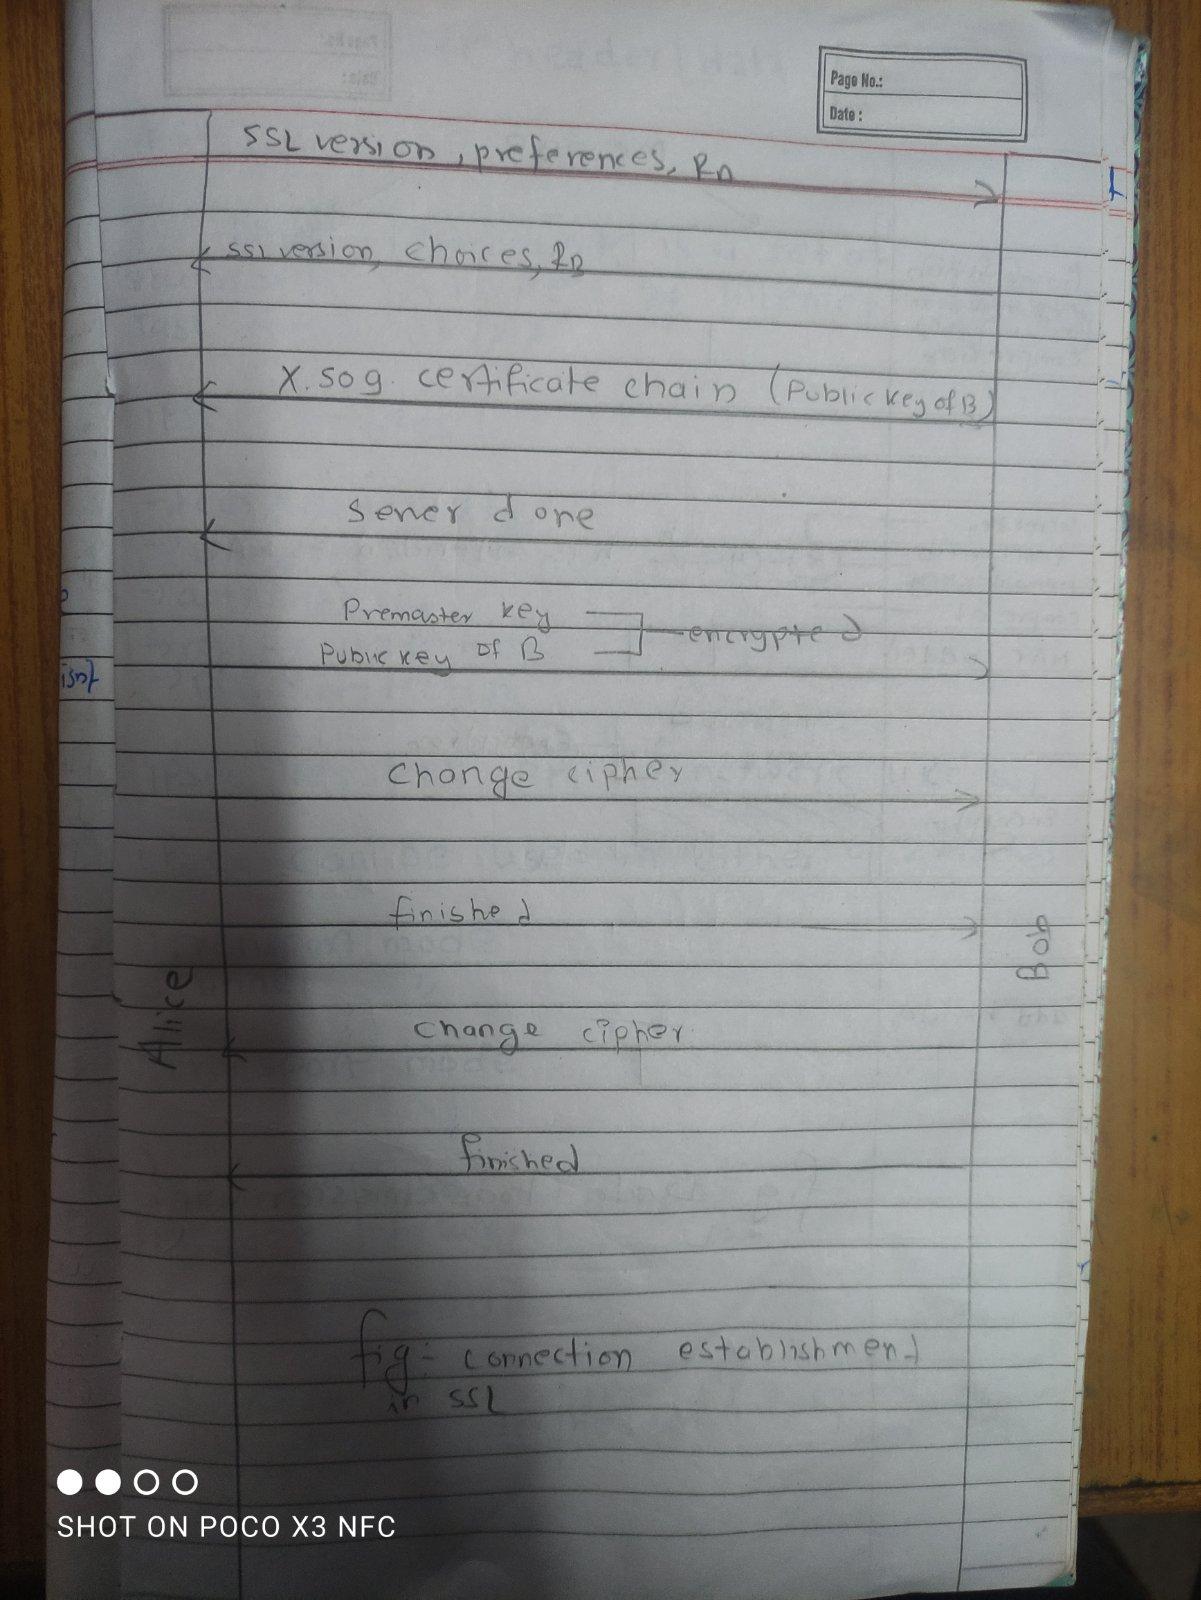 Page No.:
Date :
SSL version, preferences, RA
SSL version, choices, RB
X.509. certificate chain (Public key of B)
Server done
Premaster key
encrypted
Public key of B
Change cipher
finished
Bob
Alice
change cipher
finished
fig:- connection establishment
in SSL
SHOT ON POCO X3 NFC